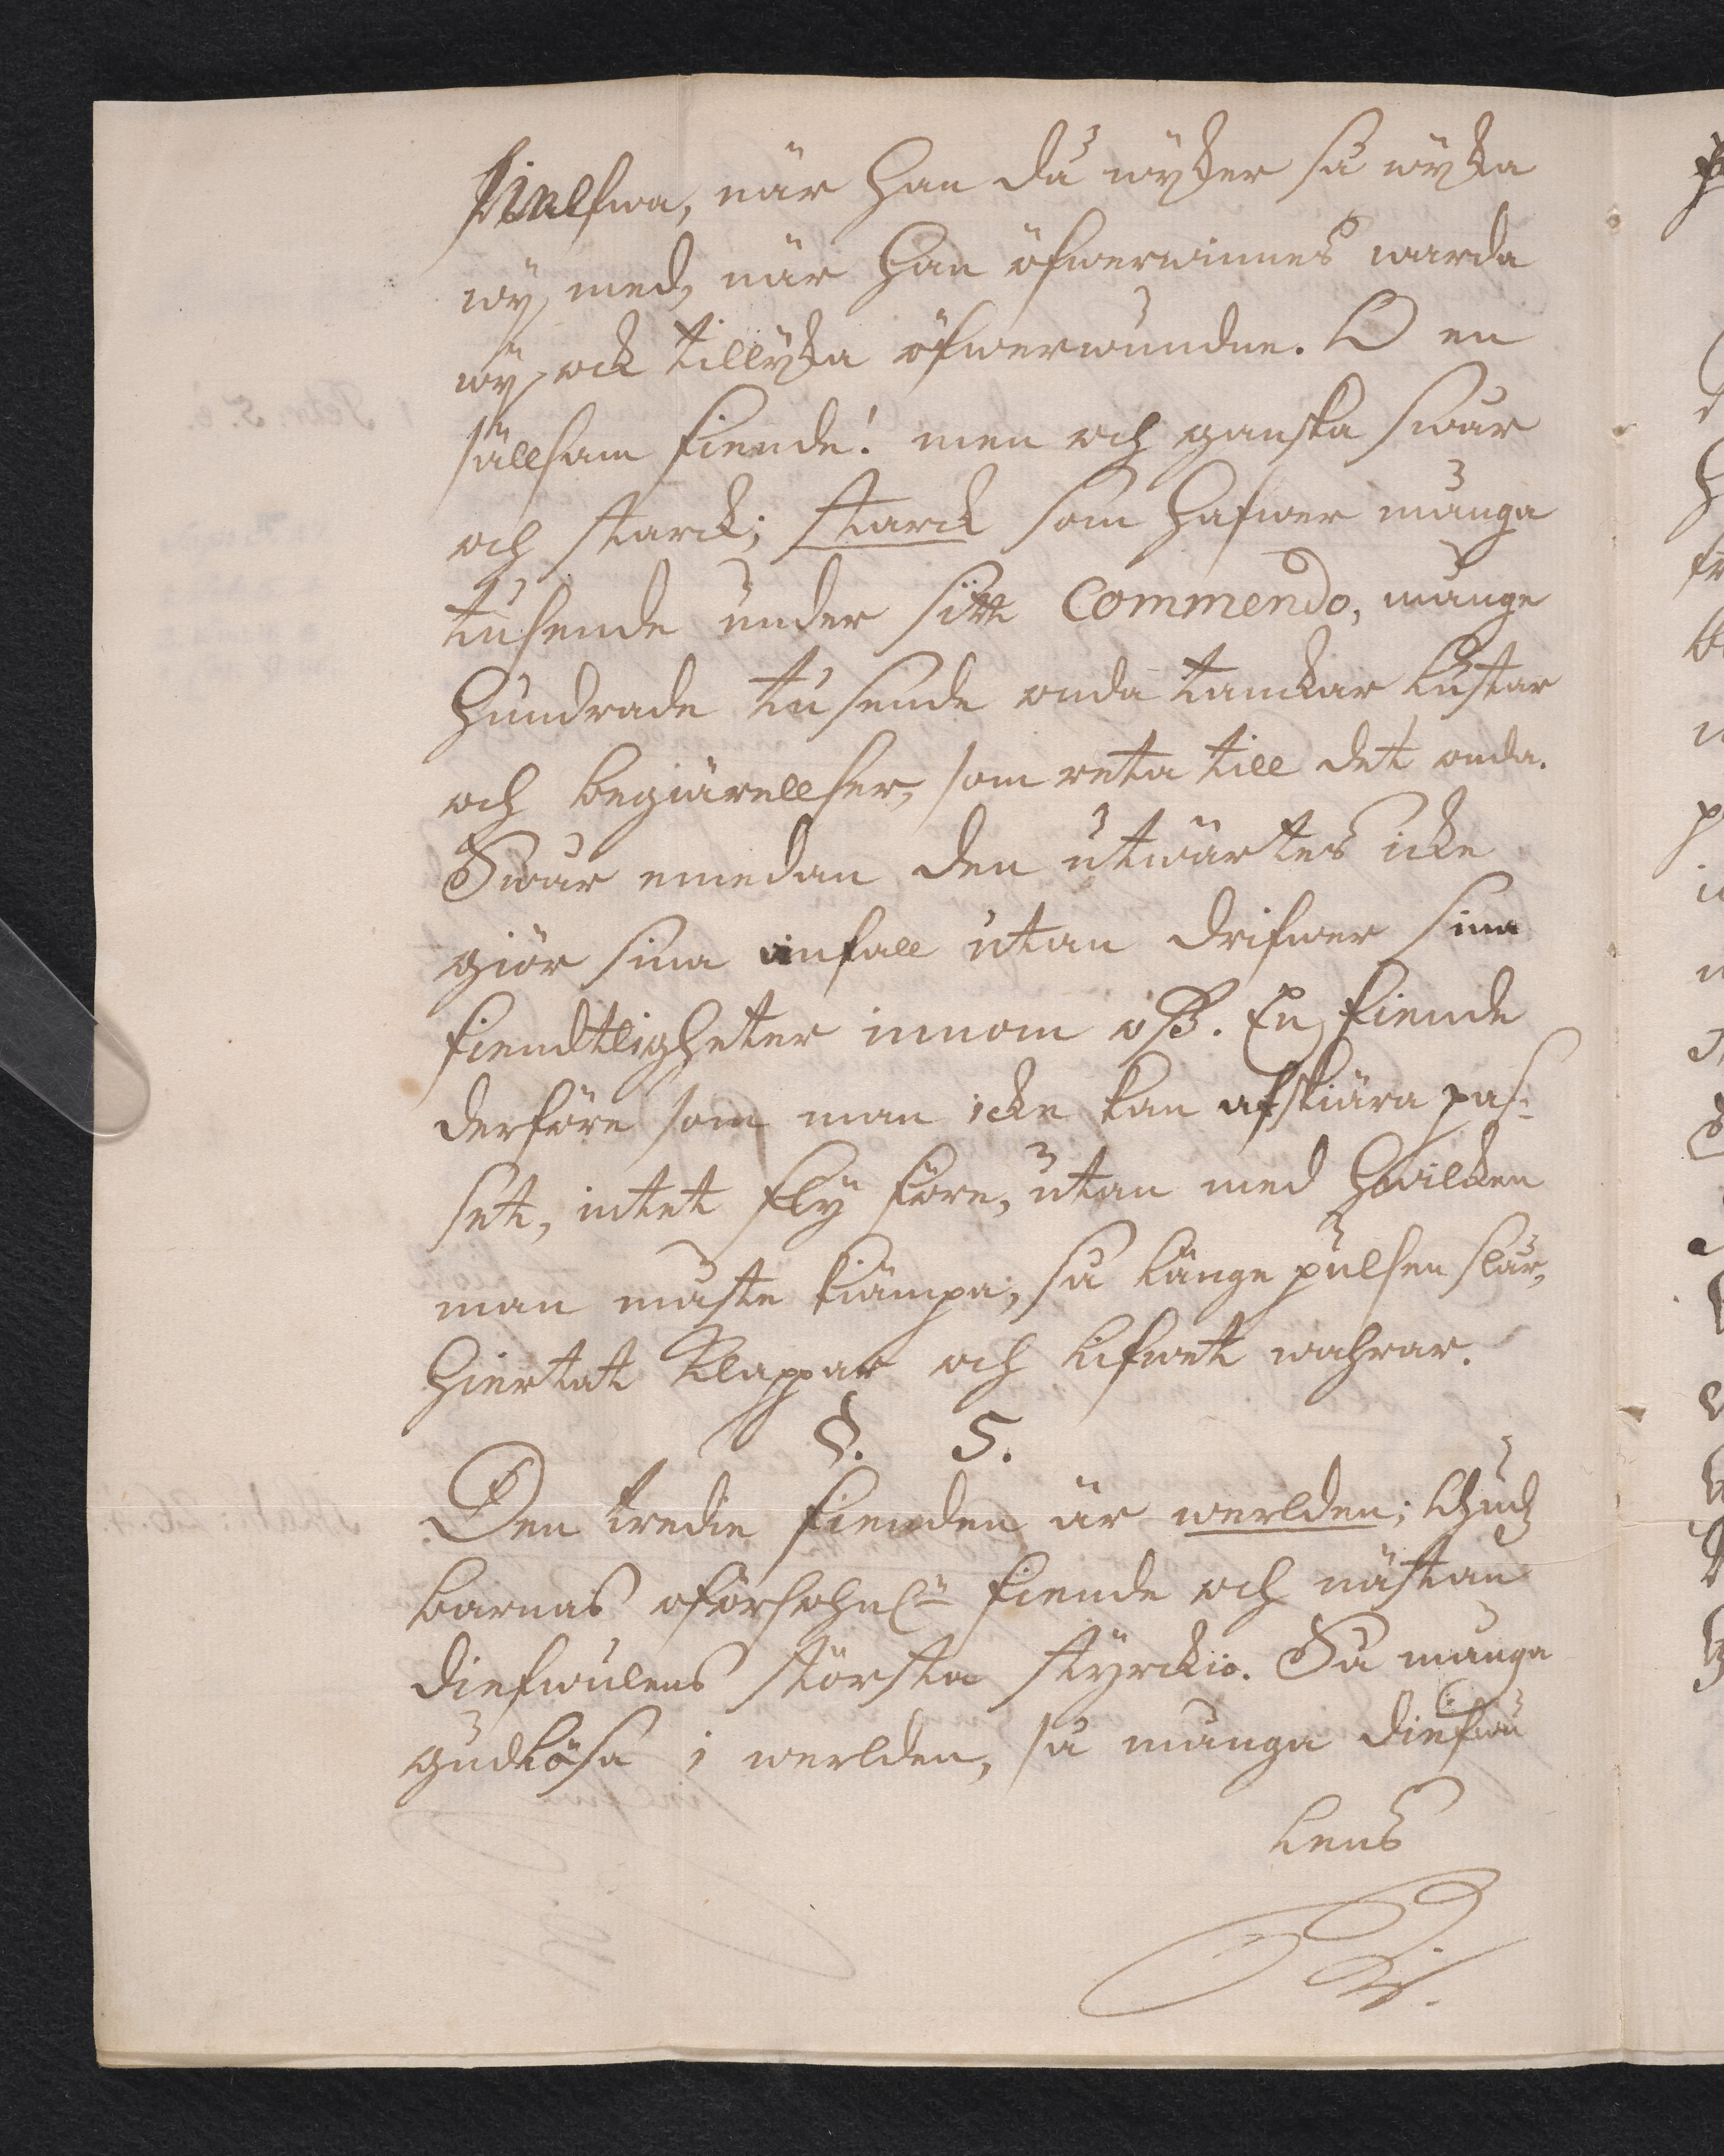 siälfwa, när han då wyker så wyka
wÿ med, när han öfwerwinnes warda
wÿ ock tillyka öfwerwundne. O en
sällsam fiende! men och ganska swår
och starck; starck som hafwer många
tusende under sitt Commendo, månge
hundrade tusende onda tanckar lustar
och begiärellser, som reta till det onda.
Swår emedan den utwärtes icke
giör sina anfall utan drifwer sina
fiendtligheter innom oß. En fiende
derföre som man icke kan afskiära pas-
set, intet flÿ före, utan med hwilcken
man måste kiämpa, så länge pulsen slår,
hiertat klappar och lifwet wahrar.
§. 5.
Den tredie fienden är werlden; Gudz
barnas oförsohnl: fiende och nästan
diefwulens största styrckio. Så många
gudlösa i werlden, så många diefwu
lens